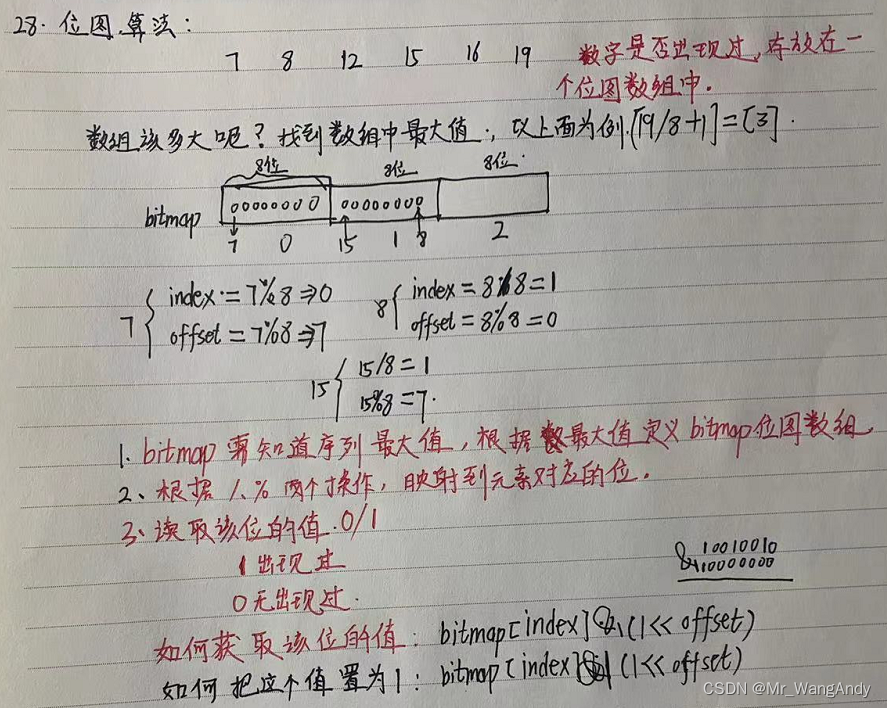 28. 位图算法:
7 8 12 15 16 19 数字是否出现过,存放在一
个位图数组中.
数组该多大呢? 找到数组中最大值, 以上面为例.[19/8+1]=[3].
8位 8位 8位
bitmap 00000000 00000000
7 0 15 1 8 2
7 { index = 7%8 => 0 8 { index = 8/8=1
offset = 7%8 => 7 offset = 8%8=0
15 { 15/8=1
15%8=7.
1. bitmap 需知道序列最大值, 根据最大值定义bitmap位图数组
2、根据 /、% 两个操作, 映射到元素对应的位.
3、读取该位的值. 0/1
1 出现过
0 无出现过.
10010010
& 10000000
如何获取该位的值: bitmap[index] & (1<< offset)
如何把这个值置为1: bitmap[index] | (1<< offset)
CSDN @Mr_WangAndy